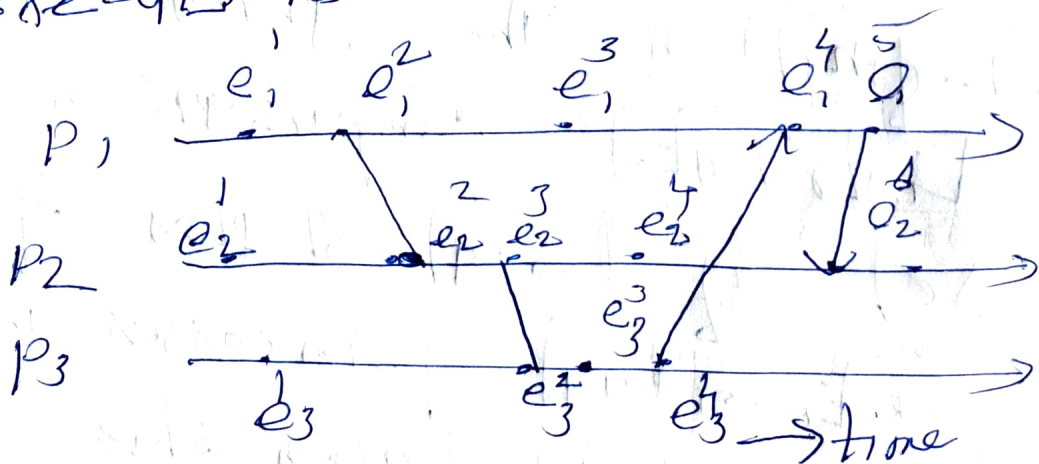 e₁¹ e₁² e₁³ e₁⁴ e₁⁵
P₁
e₂¹ e₂² e₂³ e₂⁴
P₂
e₃³
P₃
e₃¹ e₃² e₃⁴ → time